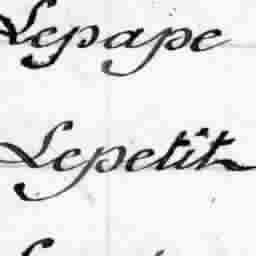 Lepape
Lepetit